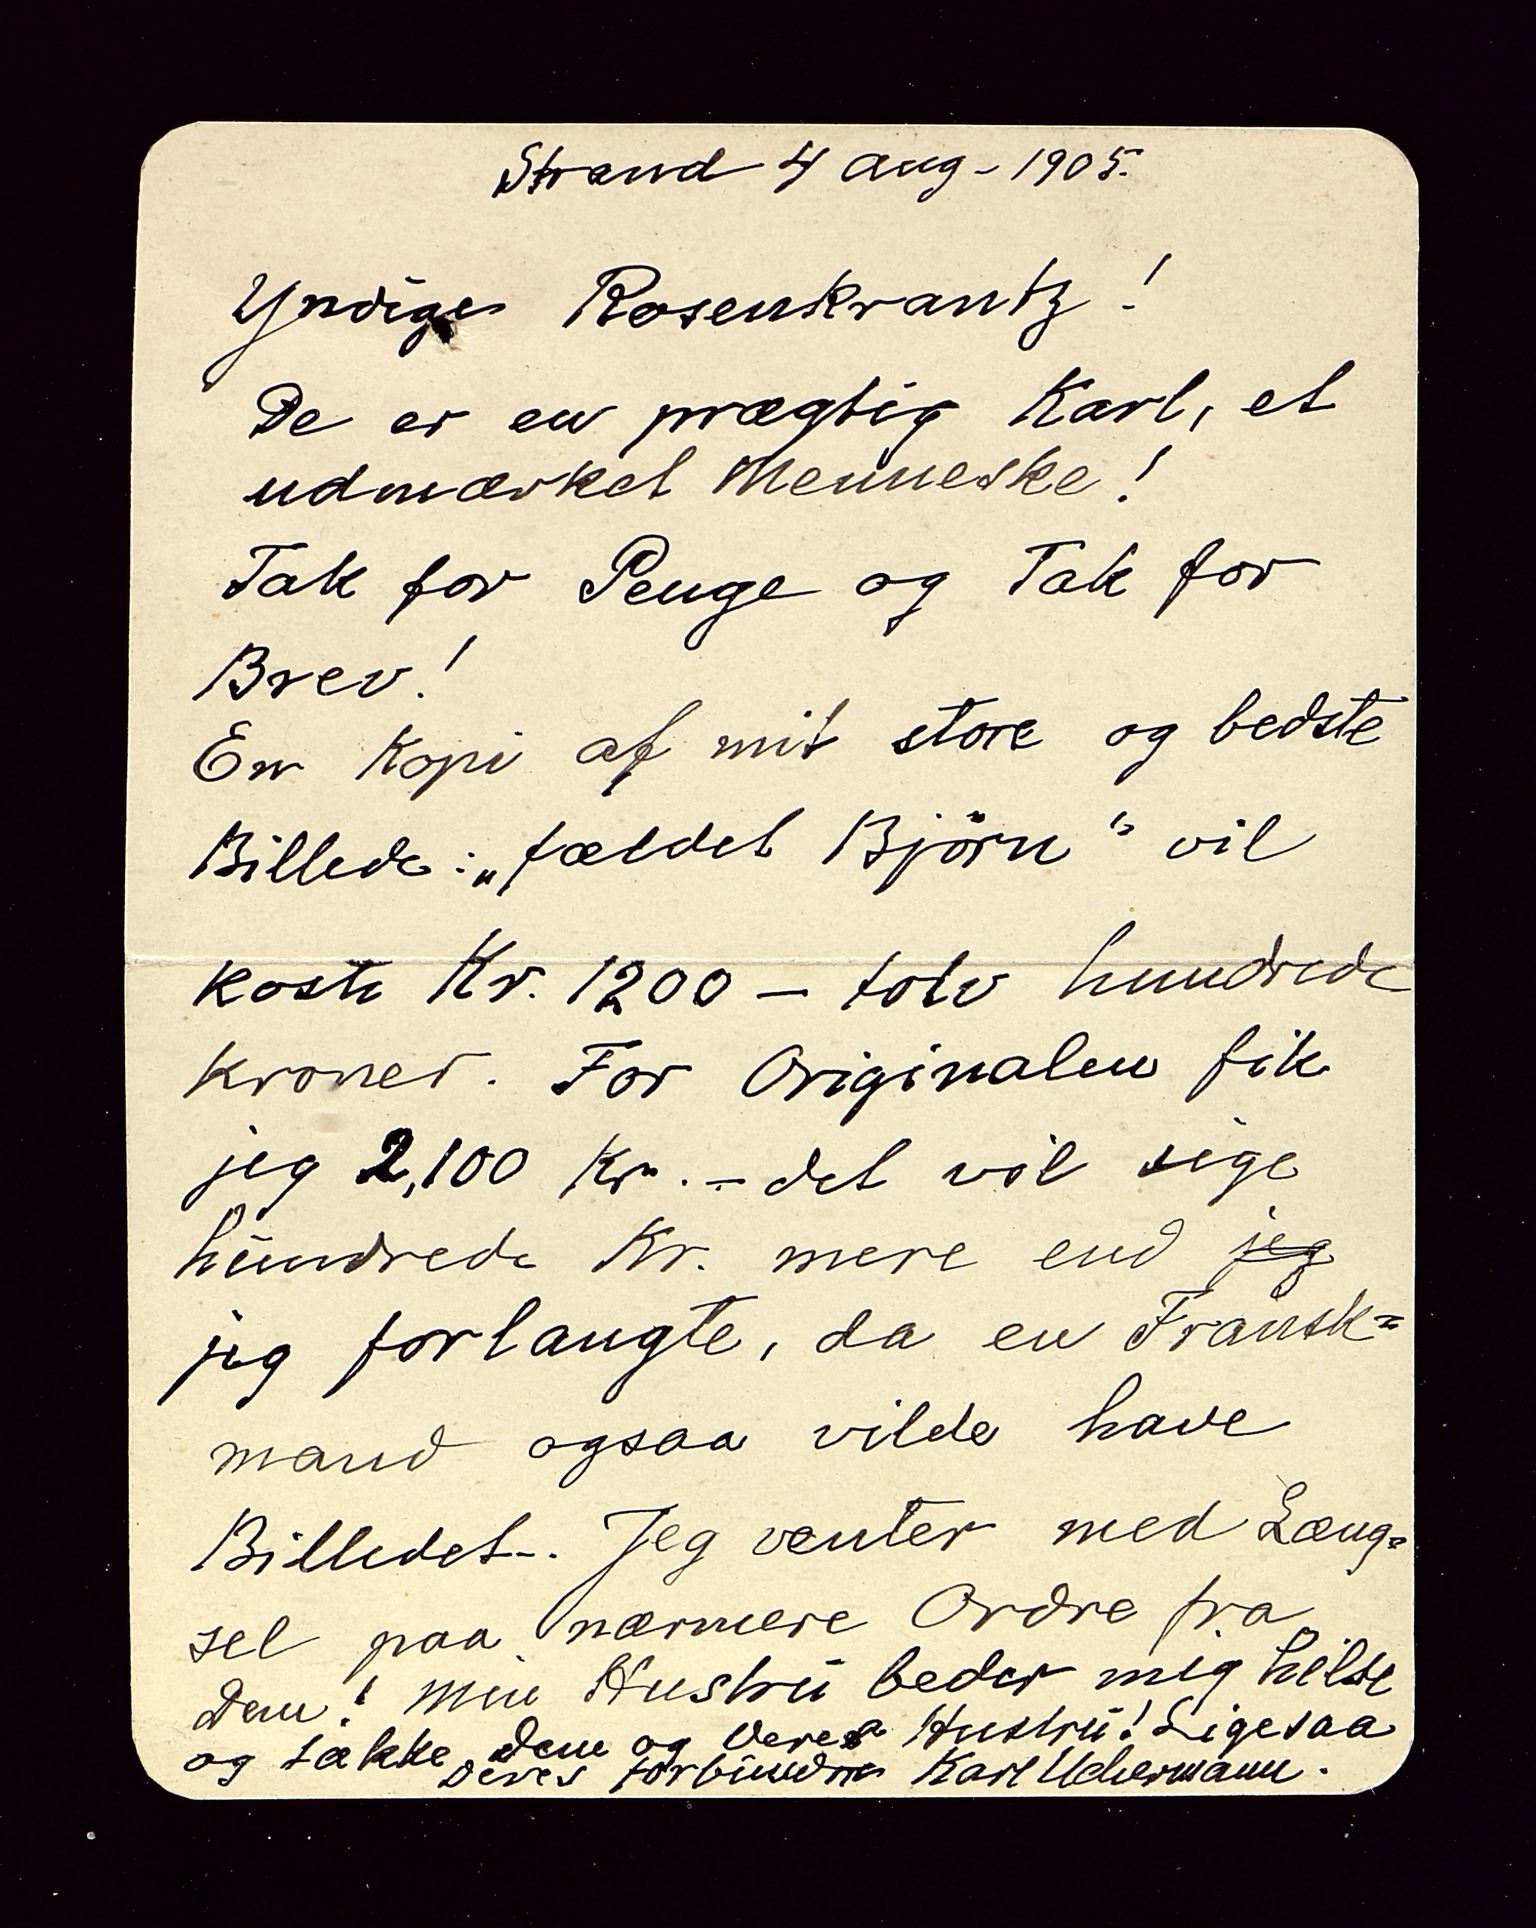 Strand 4 aug - 1905.
Yndige Rosenkrantz!
De er en prægtig Karl, et
udmærket Menneske!
Tak for Penge og Tak for
Brev!
En Kopi af mit store og bedste
Billede: „fældet Björn“ vil
koste Kr. 1200 — tolv hundrede
kroner. For Originalen fik
jeg 2,100 Kr. — det vil sige
hundrede Kr. mere end jeg
jeg forlangte, da en Fransk=
mand ogsaa vilde have
Billedet-. Jeg venter med Læng=
sel paa nærmere Ordre fra
Dem! Min Hustru beder mig hilse
og takke Dem og Deres Hustru! Ligesaa
Deres forbundne Karl Uchermann.